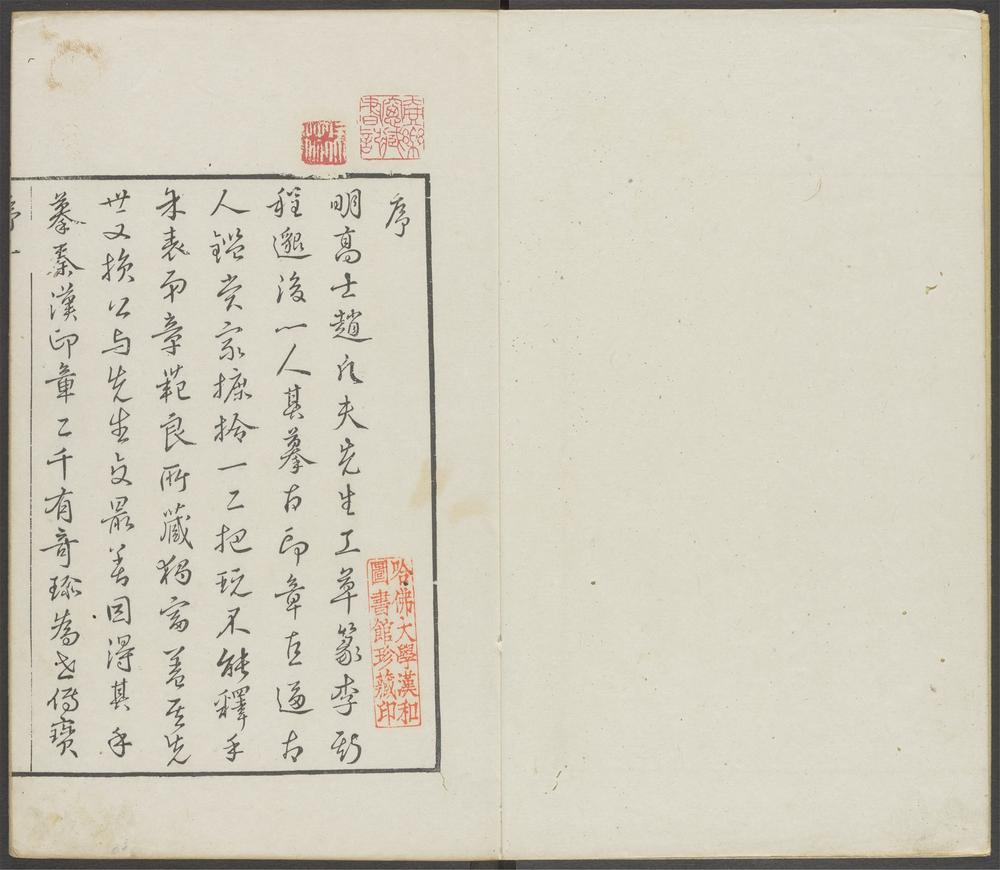 序
明高士趙凡夫先生工草篆李斯
程邈後一人其摹古印章直逼古
人鑑賞家摭拾一二把玩不能釋手
朱表弟章範良所藏獨富蓋其先
世又損公与先生交最善因得其手
摹秦漢印章二千有奇珍為世傳寶
序一
哈佛大學漢和
圖書館珍藏印